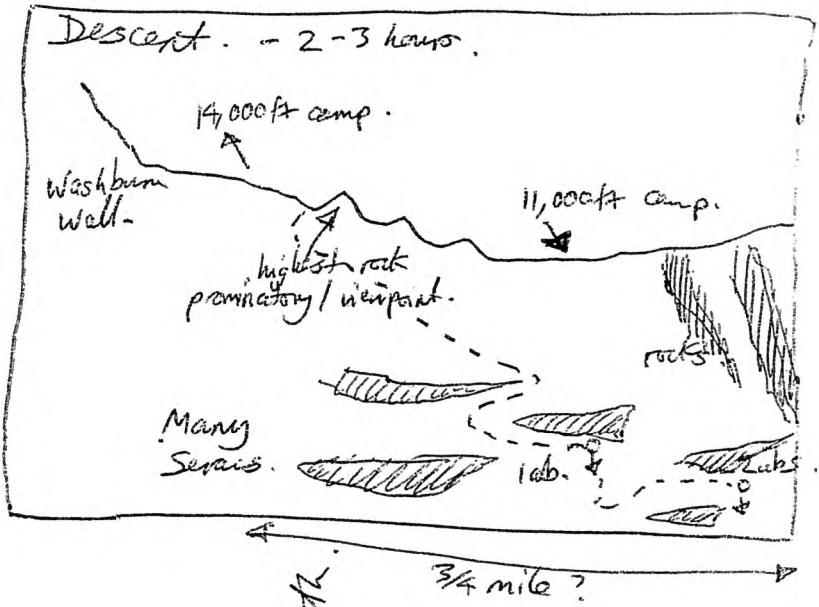 Descent. - 2-3 hours.
14,000ft camp.
Washburn
Wall-
11,000ft camp.
highest rock
prominatory / viewpoint.
rocks
Many
Seracs.
1ab.
2abs.
3/4 mile?